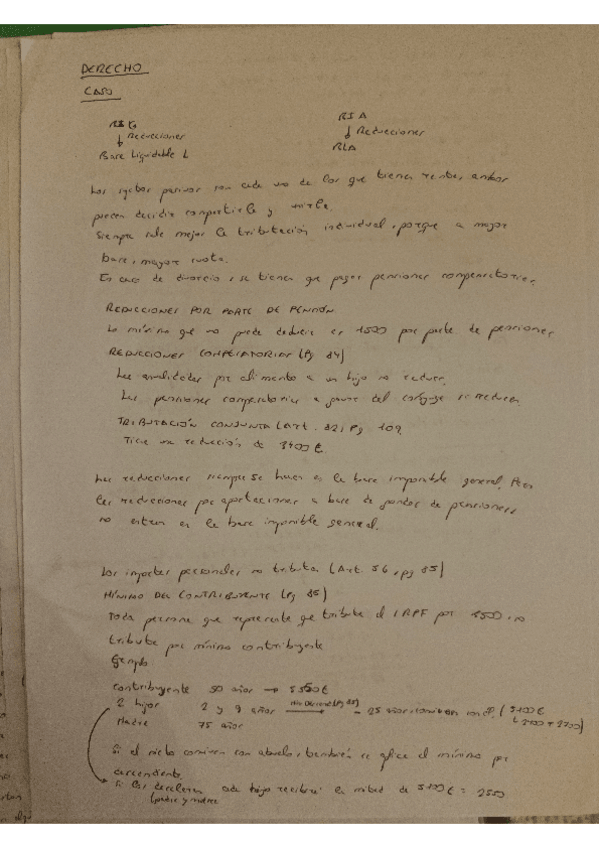 DERECHO
CASO
BIG BIA
↓ Reducciones ↓ Reducciones
Base Liquidable L BLA
Los sujetos pasivos son cada uno de los que tienen rentas, ambos
pueden decidir compartirla y unirla.
Siempre sale mejor la tributación individual, porque a mayor
base, mayor cuota.
En caso de divorcio, se tienen que pagar pensiones compensatorias.
REDUCCIONES POR PARTE DE PENSIÓN
Lo mínimo que no puede deducir es 1500 por parte de pensiones
REDUCCIONES COMPENSATORIAS (Pg 84)
Las anualidades por alimento a un hijo no reducen.
Las pensiones compensatorias a favor del conyuge si reducen
TRIBUTACIÓN CONJUNTA (Art. 82, Pg 109
Tiene una reducción de 3400 €
Las reducciones siempre se hacen en la base imponible general. Pero
las reducciones por aportaciones a base de fondos de pensiones
no entran en la base imponible general.
Los importes personales no tributan (Art. 56, pg 85)
MÍNIMO DEL CONTRIBUYENTE (Pg 85)
Toda persona que represente que tribute el IRPF por 5500, no
tributa por mínimo contribuyente
Ejemplo
Contribuyente 50 años → 5550€
2 hijos 2 y 9 años → - 25 años (5100€
Madre 75 años (2400 + 2700)
Si el nieto convive con abuelo, también se aplica el mínimo por
descendiente.
Si los cada hijo recibirá la mitad de 5100€ = 2550
(padre y madre